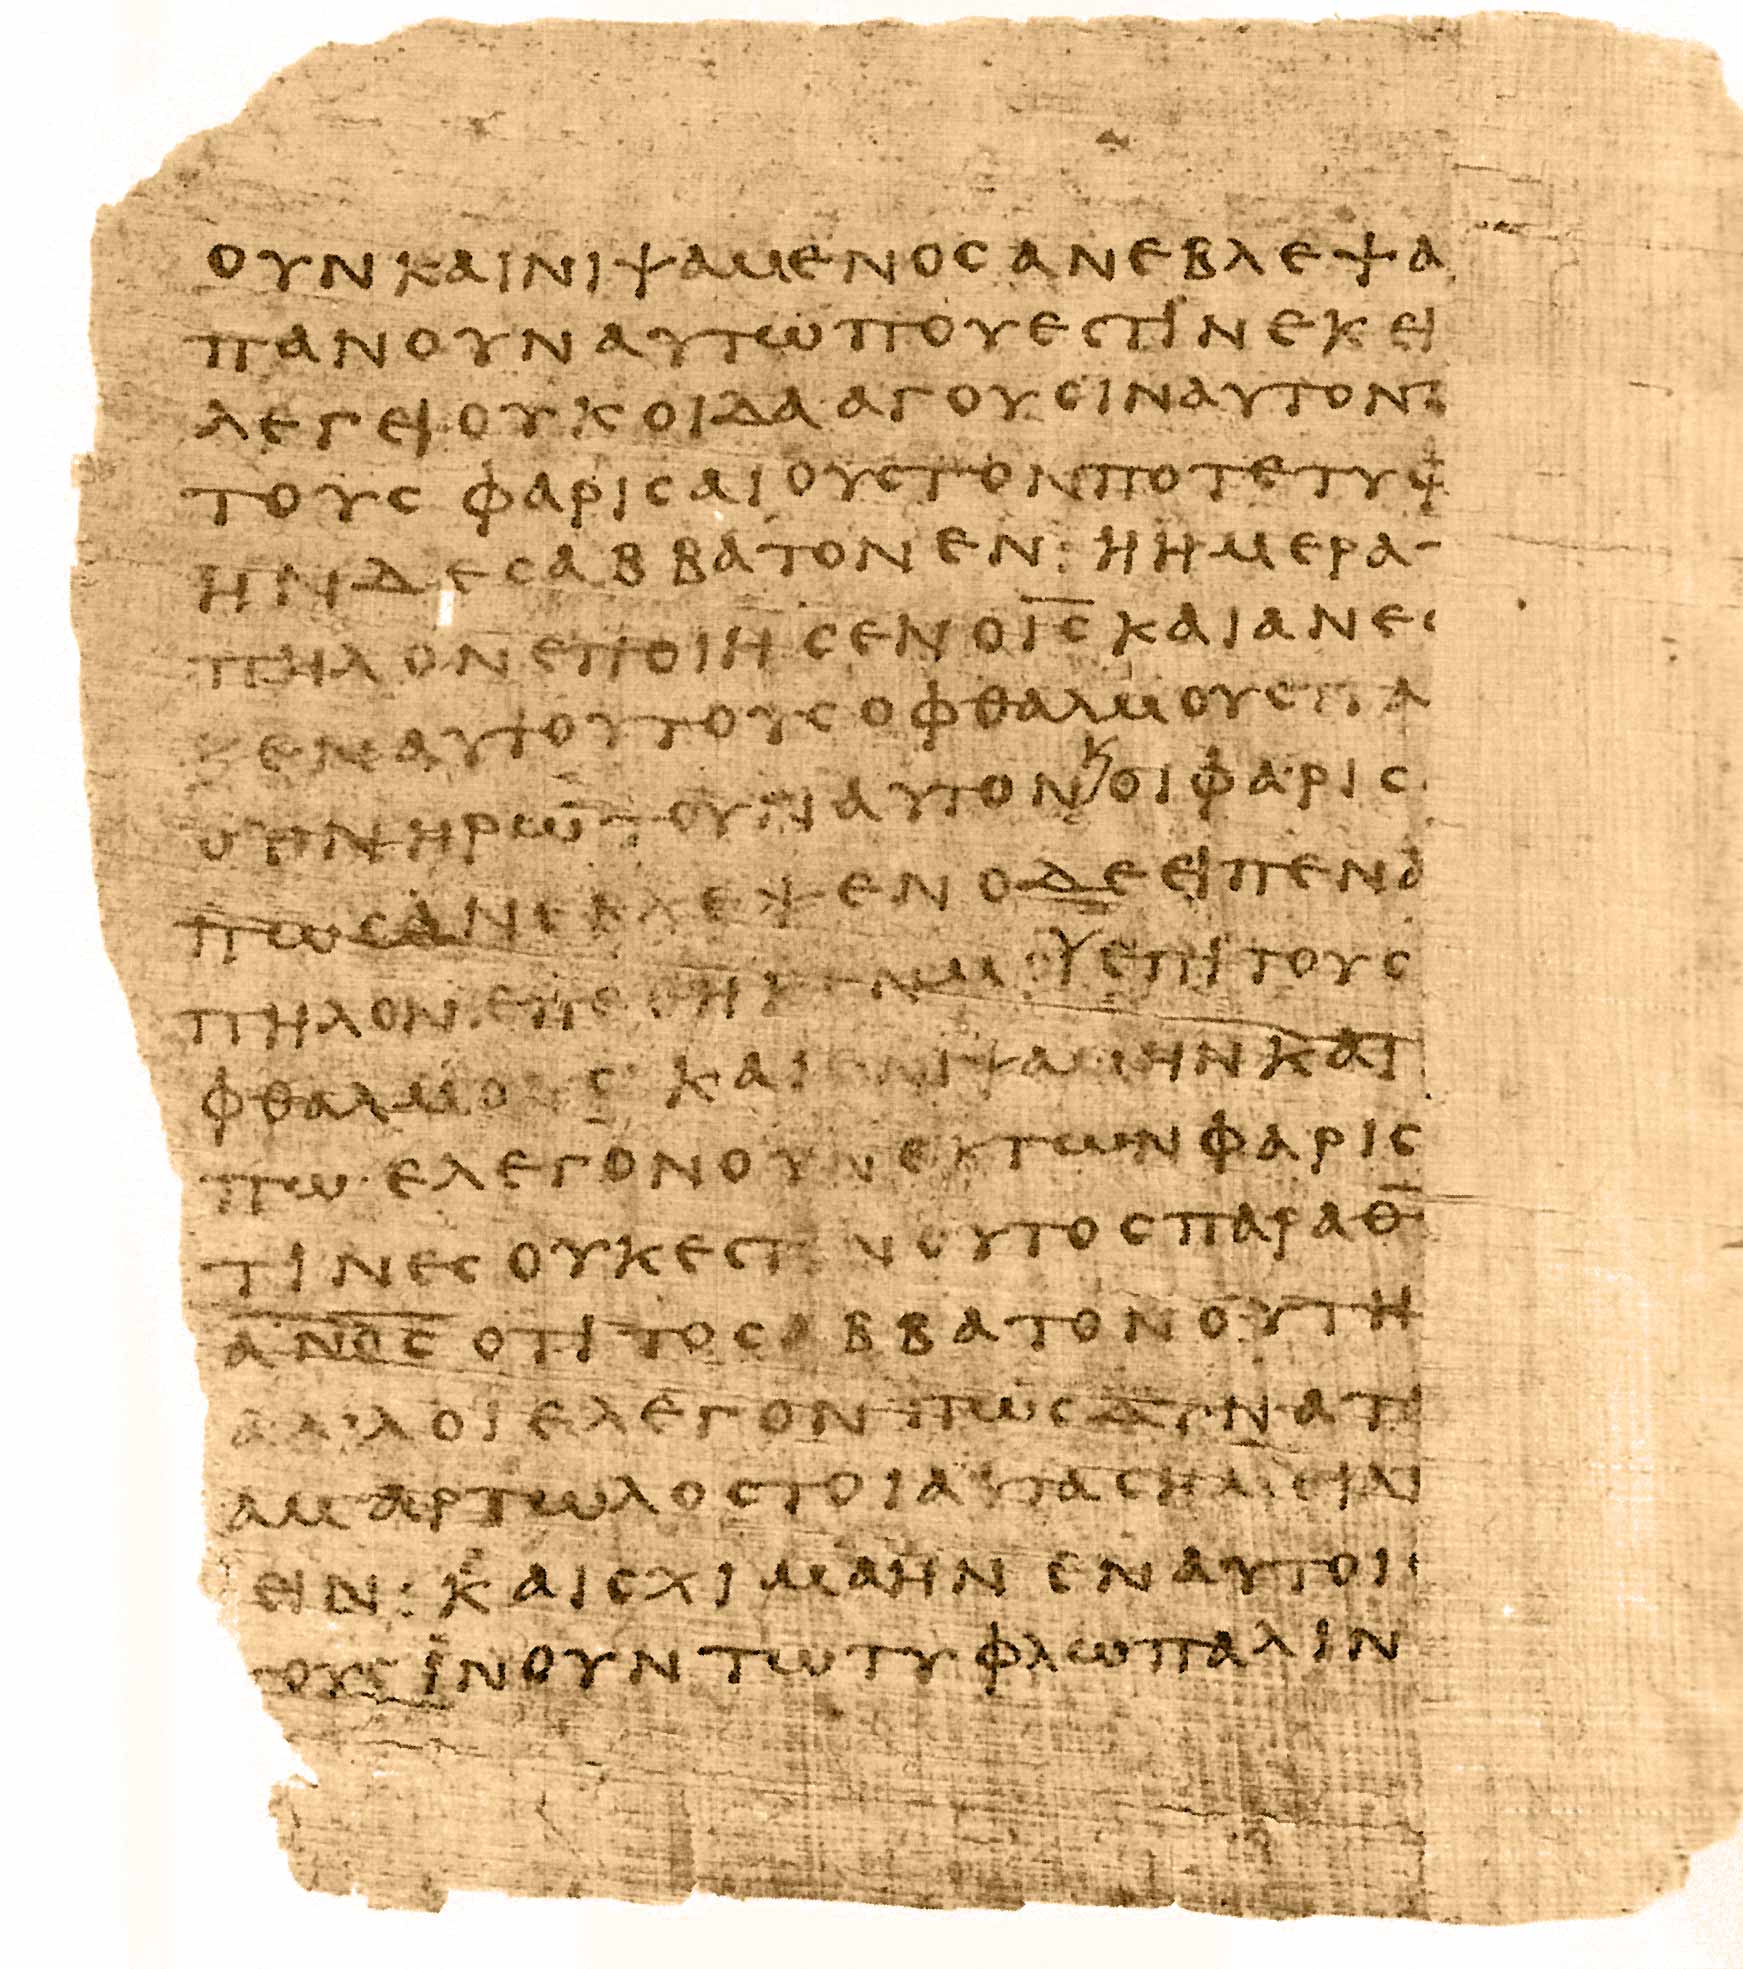 ουν και νιψαμενος ανεβλεψα
παν ουν αυτω που εστιν εκει
λεγει ουκ οιδα· αγουσιν αυτον
τους φαρισαιους τον ποτε τυφ
ην δε σαββατον εν: η ημερα
πηλον εποιησεν ο ι̅ς̅ και ανε
ξεν αυτου τους οφθαλμους πα
ουν ηρωτουν αυτον κ/ οι φαρισ
πως ανεβλεψεν ο δε ειπεν
πηλον επεθηκεν μου επι τους
φθαλμους και ενιψαμην και
πω· ελεγον ουν εκ των φαρισ
τινες ουκ εστιν ουτος παρα θ̅
α̅ν̅ο̅ς̅ οτι το σαββατον ου τη
αλ'λοι ελεγον πως δυνατ
αμαρτωλος τοιαυτα σημεια
ειν: και σχιμα ην εν αυτοι
ουσιν ουν τω τυφλω παλιν